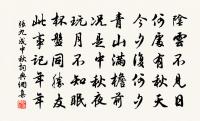 陰雲不見日
何處有秋天
今夕復何夕
青山滿檐前
況是中秋夜
玩月不知眠
杯盤同勝友
此事記年年
張九成中秋詞典網集